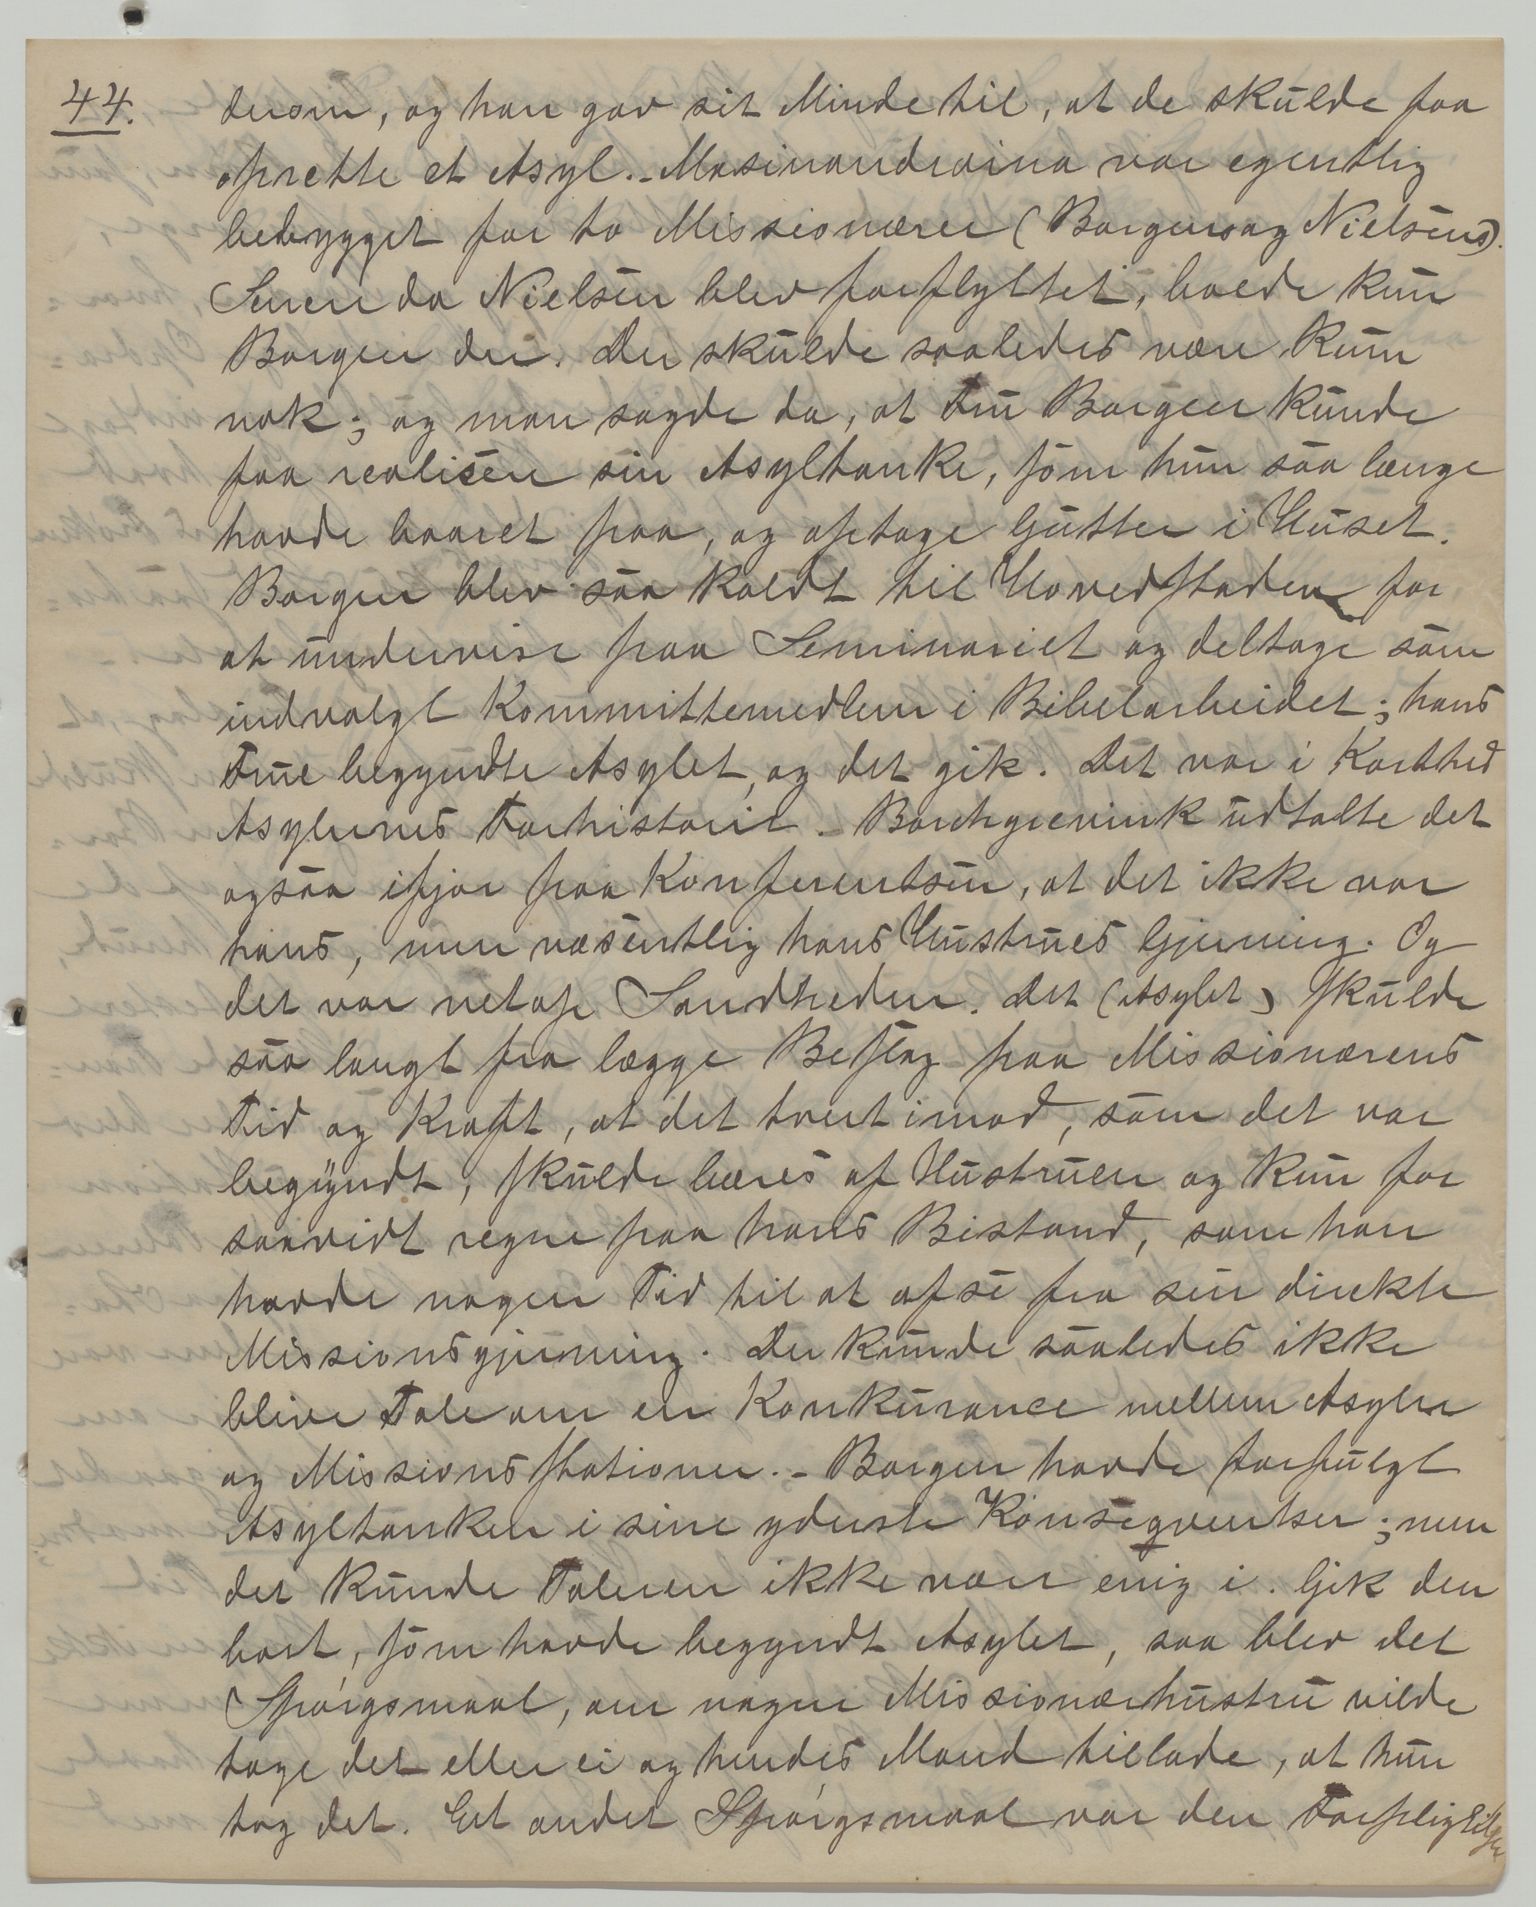 44.
derom, og han gav sit Minde til, at de skulde faa
oprette et Asyl. - Masinandraina var egentlig
bebygget for to Missionærer (Borgens og Nielsens).
Senere da Nielsen blev forflyttet, boede kun
Borgen der. Der skulde saaledes være Rum
nok; og man sagde da, at Fru Borgen kunde
faa realisere sin Asyltanke, som hun saa længe
havde baaret paa, og optage Gutter i Huset.
Borgen blev saa kaldt til Hovedstaden for
at undervise paa Seminariet og deltage som
indvalgt Kommittemedlem i Bibelarbeidet; hans
Frue begyndte Asylet, og det gik. Det var i Korthed
Asylernes Forhistorie. - Borchgrevink udtalte det
ogsaa ifjor paa Konferentsen, at det ikke var
hans, men væsentlig hans Hustrues Gjerning. Og
det var netop Sandheden. Det (Asylet) skulde
saa langt fra lægge Beslag paa Missionærens
Tid og Kraft, at det tvertimod, som det var
begyndt, skulde bæres af Hustruen og kun for
saavidt regne paa hans Bistand, som han
havde nogen Tid til at afse fra sin direkte
Missionsgjerning. Der kunde saaledes ikke
blive Tale om en Konkurance mellem Asyler
og Missionsstationer. - Borgen havde forfulgt
Asyltanken i sine yderste Konseqventser; men
det kunde Taleren ikke være enig i. Gik den
bort, som havde begyndt Asylet, saa blev det
Spørgsmaal, om nogen Missionærhustru vilde
tage det eller ei og hendes Mand tillade, at hun
tog det. Et andet Spørgsmaal var den Forpligtelse